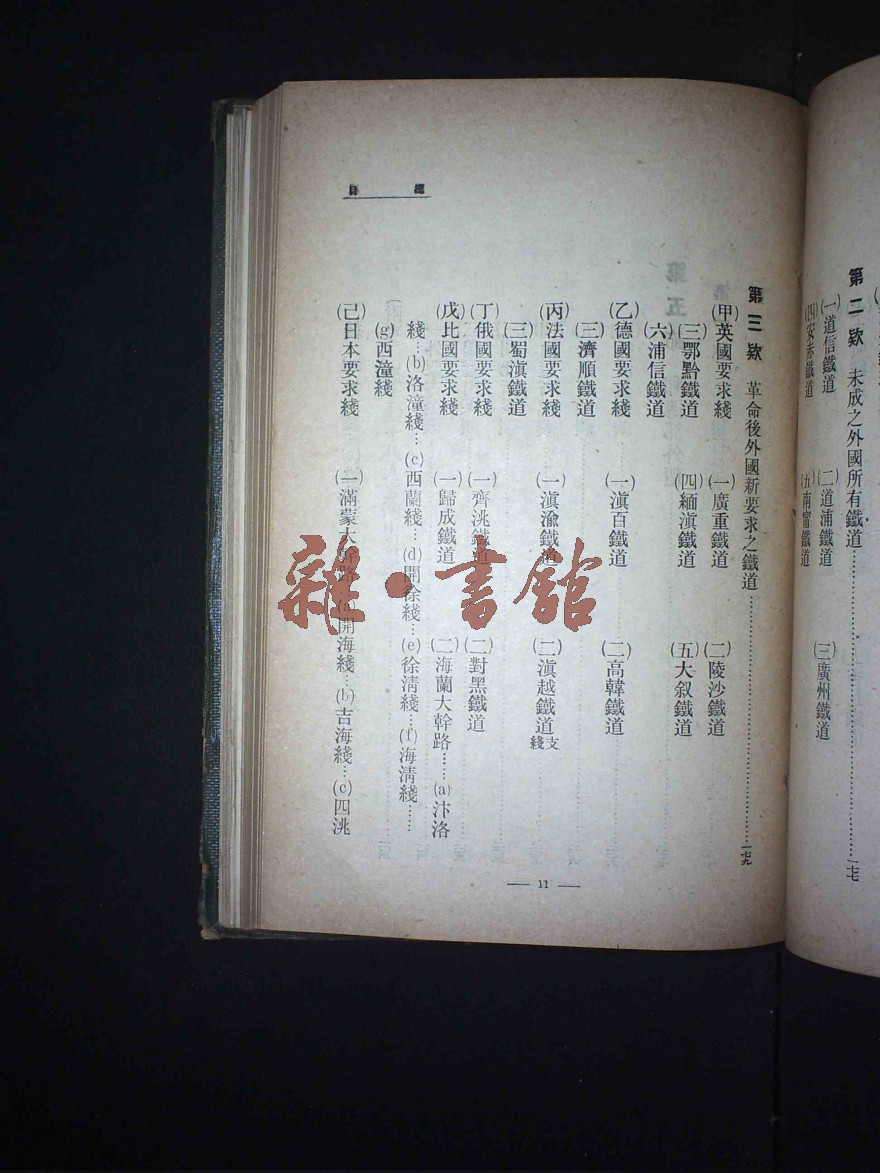 第二欵 未成之外國所有鐵道……一七
(一)道信鐵道 (二)道浦鐵道 (三)廣州鐵道
(四)安赤鐵道 (五)南甯鐵道
總目
第三欵 革命後外國新要求之鐵道……一七九
(甲)英國要求綫 (一)廣重鐵道 (二)陵沙鐵道
(三)鄂黔鐵道 (四)緬滇鐵道 (五)大叙鐵道
(六)浦信鐵道
(乙)德國要求綫 (一)滇百鐵道 (二)高韓鐵道
(三)濟順鐵道
(丙)法國要求綫 (一)滇渝鐵道 (二)滇越鐵道支綫
(三)蜀滇鐵道
(丁)俄國要求綫 (一)齊洮鐵道 (二)對黑鐵道
(戊)比國要求綫 (一)歸成鐵道 (二)海蘭大幹路……(a)汴洛
綫…(b)洛潼綫…(c)西蘭綫…(d)開徐綫…(e)徐淸綫…(f)海淸綫……
(g)西潼綫
(己)日本要求綫 (一)滿蒙大幹路…(a)開海綫…(b)吉海綫…(c)四洮
— 11 —
雜·書館